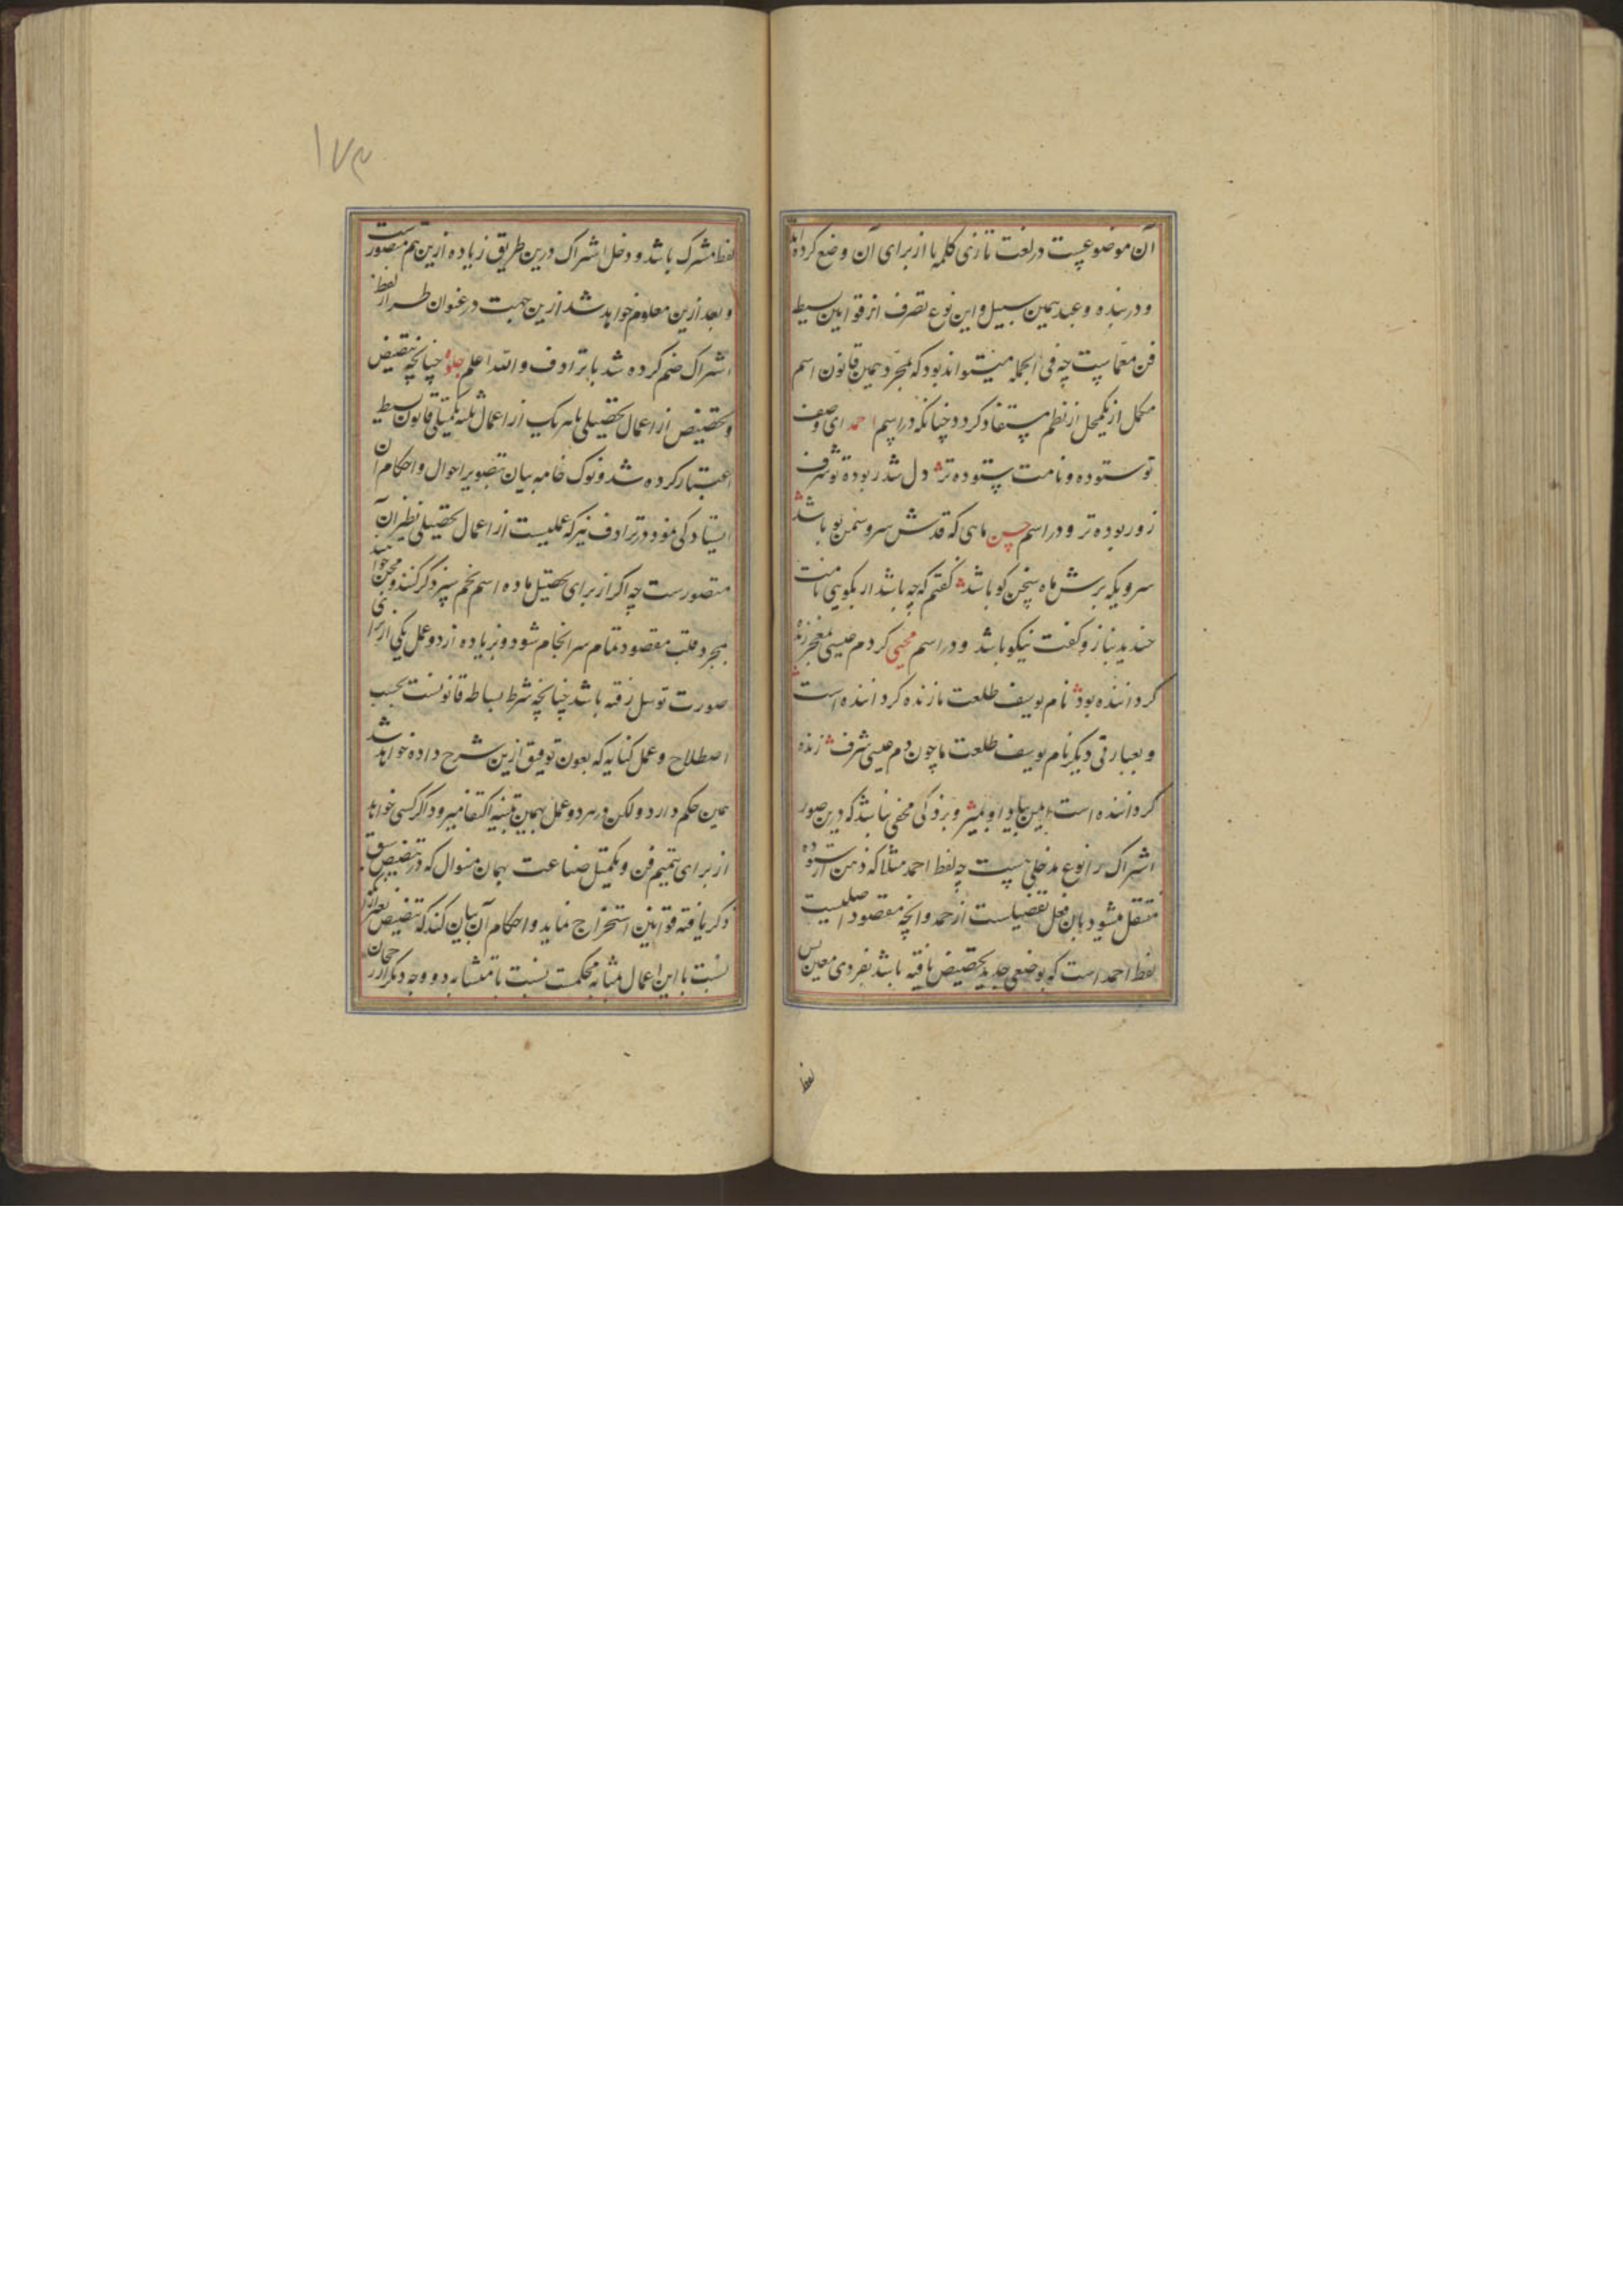 آن موضوعیست در لغت تازی کلمه یا از برای آن وضع کرده‌اند
و در بنده و عبد همین سبیل و این نوع تصرف از قوانین بسیط
فن معماست چه فی الجمله میتواند بود که بمجرد همین قانون اسم
مکمل از یکمحل از نظم مستفاد کردد چنانکه در اسم احمد ای وصف
تو ستوده و نامت ستوده تر دل شد ربوده تو شرف
زو ربوده تر و در اسم حسن ماهی که قدش سرو سمن بو باشد
سرویکه برش ماه سخن کو باشد گفتم که چه باشد ار بکویی نامت
خندید بناز و کفت نیکو باشد و در اسم محیی کر دم عیسی معجز زنده
کرداننده بود نام یوسف طلعت ما زنده کرداننده است
و بعبارتی دیکر نام یوسف طلعت ما چون دم عیسی شرف زنده
کرداننده است ببین بیاد او بمیر و بزدکی مخفی نباشد که درین صور
اشتراک را نوع مدخلی هست چه لفظ احمد مثلا که ذهن از ستوده
منتقل میشود بان فعل تفضیلست از حمد و انچه مقصود اصلیست
لفظ احمد است که بوضعی جدید تخصیص یافته باشد بفردی معین پس
لفظ
۱۷۳
لفظ مشترک باشد و دخل اشتراک درین طریق زیاده ازین هم متصورست
و بعد ازین معلوم خواهد شد ازین جهت در عنوان طراز لفظ
اشتراک ضم کرده شد با ترادف و الله اعلم جلوه چنانچه تنصیص
و تخصیص از اعمال تحصیلی با هر یک از اعمال ثلثه تکمیلی قانون بسیط
اعتبار کرده شد و نوک خامه بیان بتصویر احوال و احکام آن
ایستادکی نمود در ترادف نیز که عملیست از اعمال تحصیلی نظیر آن
متصورست چه اکر از برای تحصیل ماده اسم نجم سپر ذکر کنند و مجن خواهند
بمجرد قلب مقصود تمام سرانجام شود و بزیاده از دو عمل یکی از برای
صورت توسل نرفته باشد چنانچه شرط بساطه قانونست بحسب
اصطلاح و عمل کنایه که بعون توفیق ازین شرح داده خواهد شد
همین حکم دارد و لکن در هر دو عمل بهمین تنبیه اکتفا میرود اکر کسی خواهد
از برای تتمیم فن و تکمیل صناعت بهمان منوال که در تنصیص سبق
ذکر یافته قوانین استخراج نماید و احکام آن بیان کند که تنصیص
نسبت با این اعمال مثابه محکمت نسبت با متشابه و وجه دیکر از رجحان